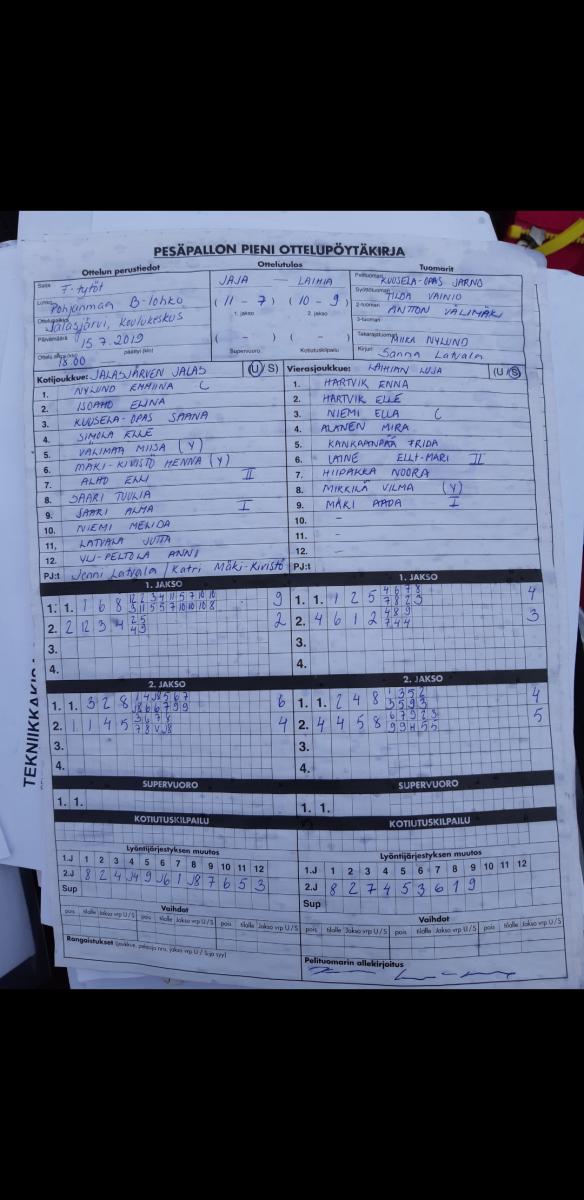 PESÄPALLON PIENI OTTELUPÖYTÄKIRJA
Ottelun perustiedot Ottelutulos Tuomarit
Sarja F-tytöt JAJA — LAIHIA Pelituomari KUUSELA-OPAS JARNO
Lohko Pohjanmaa B-lohko (11 - 7) (10 - 9) Syöttötuomari TILDA VAINIO
1. jakso 2. jakso 2-tuomari ANTTON VÄLIMÄKI
Ottelupaikka Jalasjärvi, Koulukeskus 3-tuomari
Päivämäärä 15.7.2019 ( - ) ( - ) Takarajatuomari MIIKA NYLUND
Ottelu alkoi (klo) 18.00 päättyi (klo) Supervuoro Kotiutuskilpailu Kirjuri Sanna Latvala
Kotijoukkue: JALASJÄRVEN JALAS (U/S) Vierasjoukkue: LAIHIAN LUJA (U/S)
1. NYLUND EMMIINA C 1. HARTVIK ENNA
2. ISOAHO ELINA 2. HARTVIK ELLE
3. KUUSELA-OPAS SAANA 3. NIEMI ELLA C
4. SIMOLA ELLE 4. ALANEN MIRA
5. VÄLIMAA MIISA (Y) 5. KANKAANPÄÄ FRIDA
6. MÄKI-KIVISTÖ HENNA (Y) 6. LAINE ELLI-MARI II
7. ALHO ELLI II 7. HIIPAKKA NOORA
8. SAARI TUULIA 8. MIKKILÄ VILMA (Y)
9. SAARI ALMA I 9. MÄKI AADA I
10. NIEMI MELIDA 10. –
11. LATVALA JUTTA 11. –
12. YLI-PELTOLA ANNI 12. –
PJ:t Jenni Latvala / Katri Mäki-Kivistö PJ:t
1. JAKSO 1. JAKSO
1. 1. 1 6 8 9 1. 1. 1 2 5 4 6 7 8 4
7 8 2 3
2. 2 12 3 4 2 5 2 2. 4 6 1 2 4 8 9 3
4 3 7 4 4
3. 3.
4. 4.
2. JAKSO 2. JAKSO
1. 1. 3 2 8 6 1. 1. 2 4 8 1 3 5 2 4
3 5 9 3
2. 1 1 4 5 3 6 7 8 4 2. 4 4 5 8 6 7 9 2 3 5
3. 3.
4. 4.
SUPERVUORO SUPERVUORO
1. 1. 1. 1.
KOTIUTUSKILPAILU KOTIUTUSKILPAILU
Lyöntijärjestyksen muutos Lyöntijärjestyksen muutos
1.J 1 2 3 4 5 6 7 8 9 10 11 12 1.J 1 2 3 4 5 6 7 8 9 10 11 12
2.J 8 2 4 J4 9 J6 1 J8 7 6 5 3 2.J 8 2 7 4 5 3 6 1 9
Sup Sup
Vaihdot Vaihdot
pois tilalle Jakso vrp U/S pois tilalle Jakso vrp U/S pois tilalle Jakso vrp U/S pois tilalle Jakso vrp U/S pois tilalle Jakso vrp U/S pois tilalle Jakso vrp U/S
Rangaistukset (joukkue, pelaaja nro, jakso vrp U / S ja syy)
Pelituomarin allekirjoitus